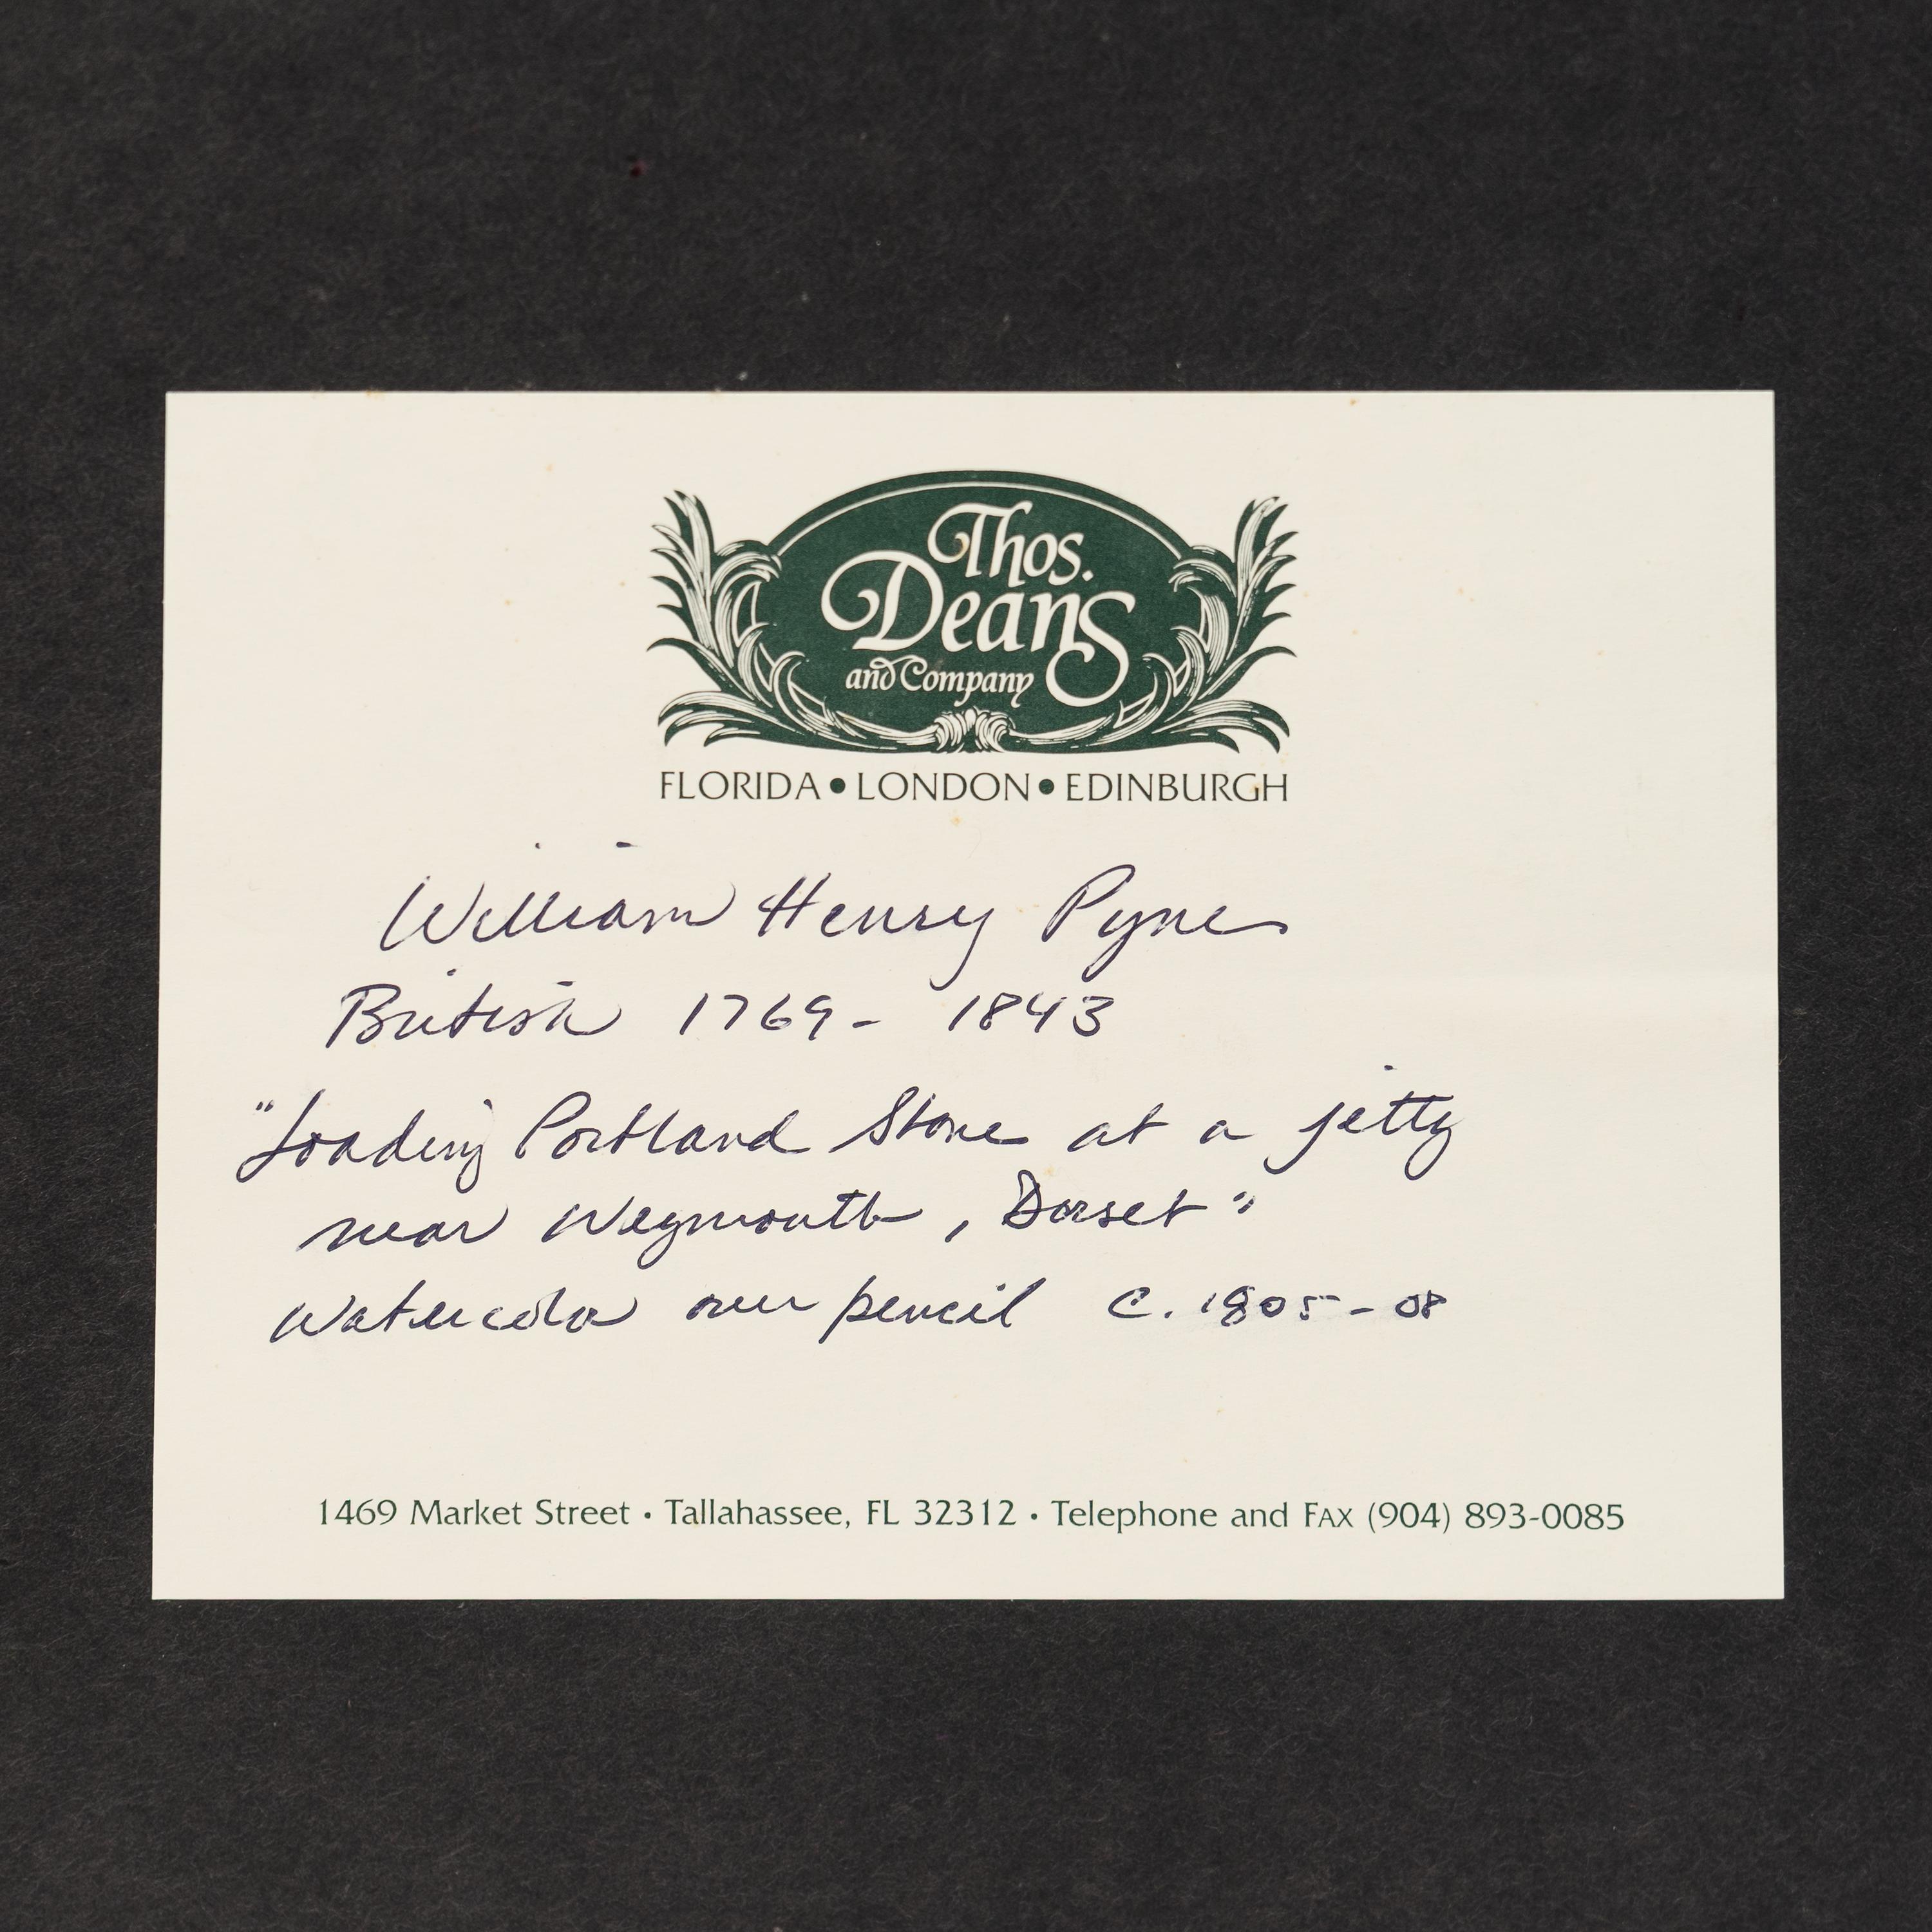 Thos.
Deans
and Company
FLORIDA • LONDON • EDINBURGH
William Henry Pyne
British 1769 - 1843
"Loading Portland Stone at a jetty
near Weymouth, Dorset"
Watercolor over pencil c. 1805 - 08
1469 Market Street • Tallahassee, FL 32312 • Telephone and FAX (904) 893-0085